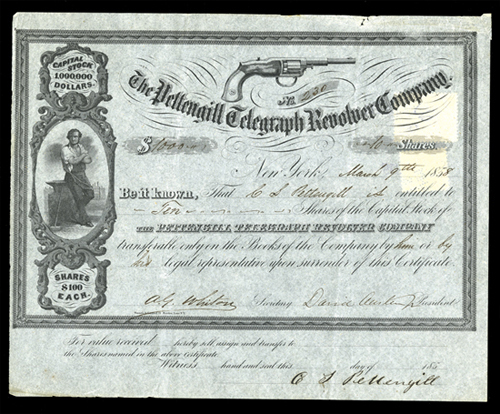 CAPITAL STOCK
1,000,000
DOLLARS.
The Pettengill Telegraph Revolver Company.
No.
$1000 10 Shares.
New York, March 9th 1858
Be it known, That C S Pettengill is entitled to
Ten Shares of the Capital Stock of
THE PETTENGILL TELEGRAPH REVOLVER COMPANY
transferable only on the Books of the Company by him or by
his Legal representative upon surrender of this Certificate.
SHARES
$100
EACH.
Secretary President
For value received hereby sell, assign and transfer to
the Shares named in the above Certificate.
Witness hand and seal this day of 185
C S Pettengill